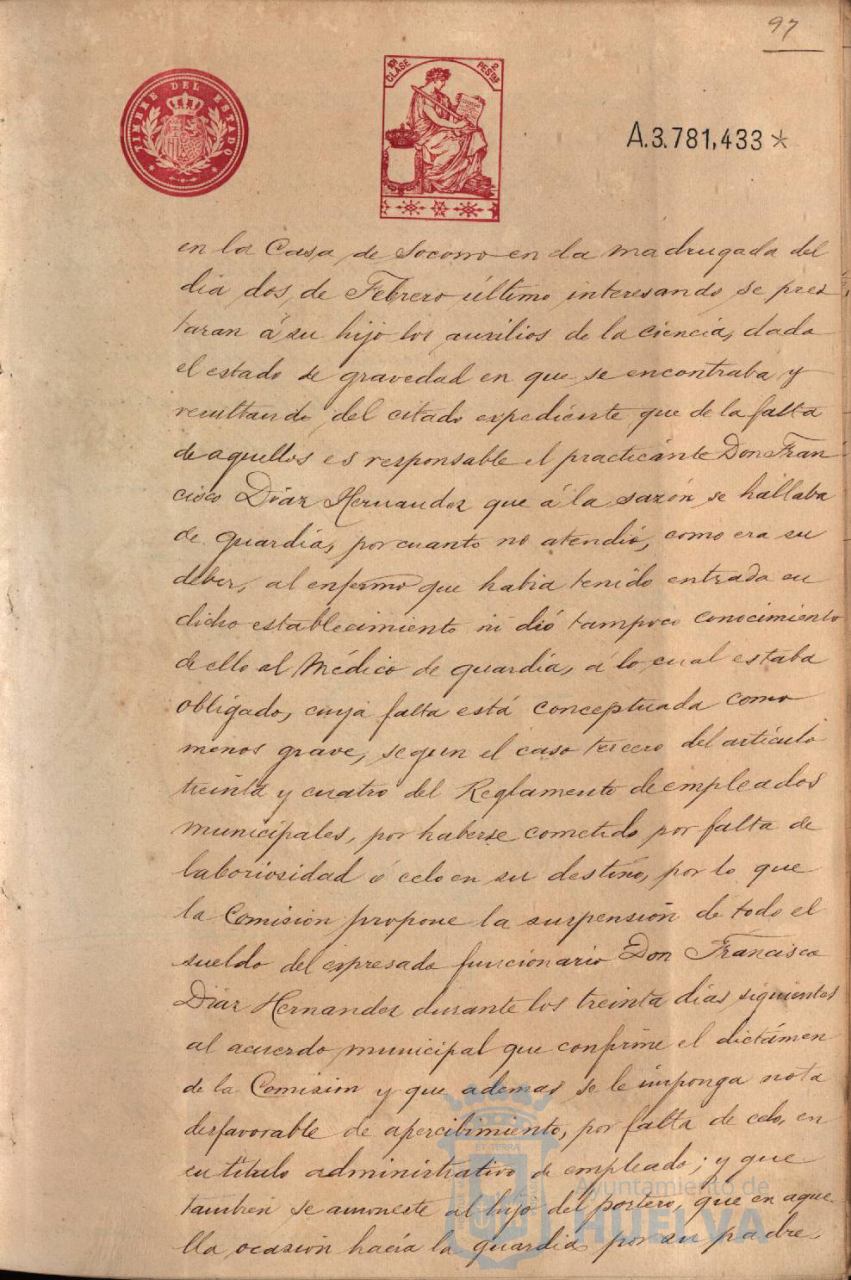 97
TIMBRE DEL ESTADO
11ª CLASE
2 PESTAS
A.3.781,433*
en la Casa de Socorro en la madrugada del
dia dos de Febrero último interesando se pres
taran á su hijo los auxilios de la ciencia, dado
el estado de gravedad en que se encontraba y
resultando del citado expediente que de la falta
de aquellos es responsable el practicante Don Fran-
cisco Diaz Hernandez que á la sazón se hallaba
de guardia, por cuanto no atendió, como era su
deber, al enfermo que habia tenido entrada en
dicho establecimiento ni dió tampoco conocimiento
de ello al Médico de guardia, á lo cual estaba
obligado, cuya falta está conceptuada como
menos grave, segun el caso tercero del artículo
treinta y cuatro del Reglamento de empleados
municipales, por haberse cometido por falta de
laboriosidad ó celo en su destino, por lo que
la Comisión propone la suspensión de todo el
sueldo del expresado funcionario Don Francisco
Diaz Hernandez durante los treinta dias siguientes
al acuerdo municipal que confirme el dictámen
de la Comisión y que ademas se le imponga nota
desfavorable de apercibimiento, por falta de celo, en
su título administrativo de empleado; y que
tambien se amoneste al hijo del portero, que en aque-
lla ocasión hacía la guardia por su padre,
Ayuntamiento de
HUELVA